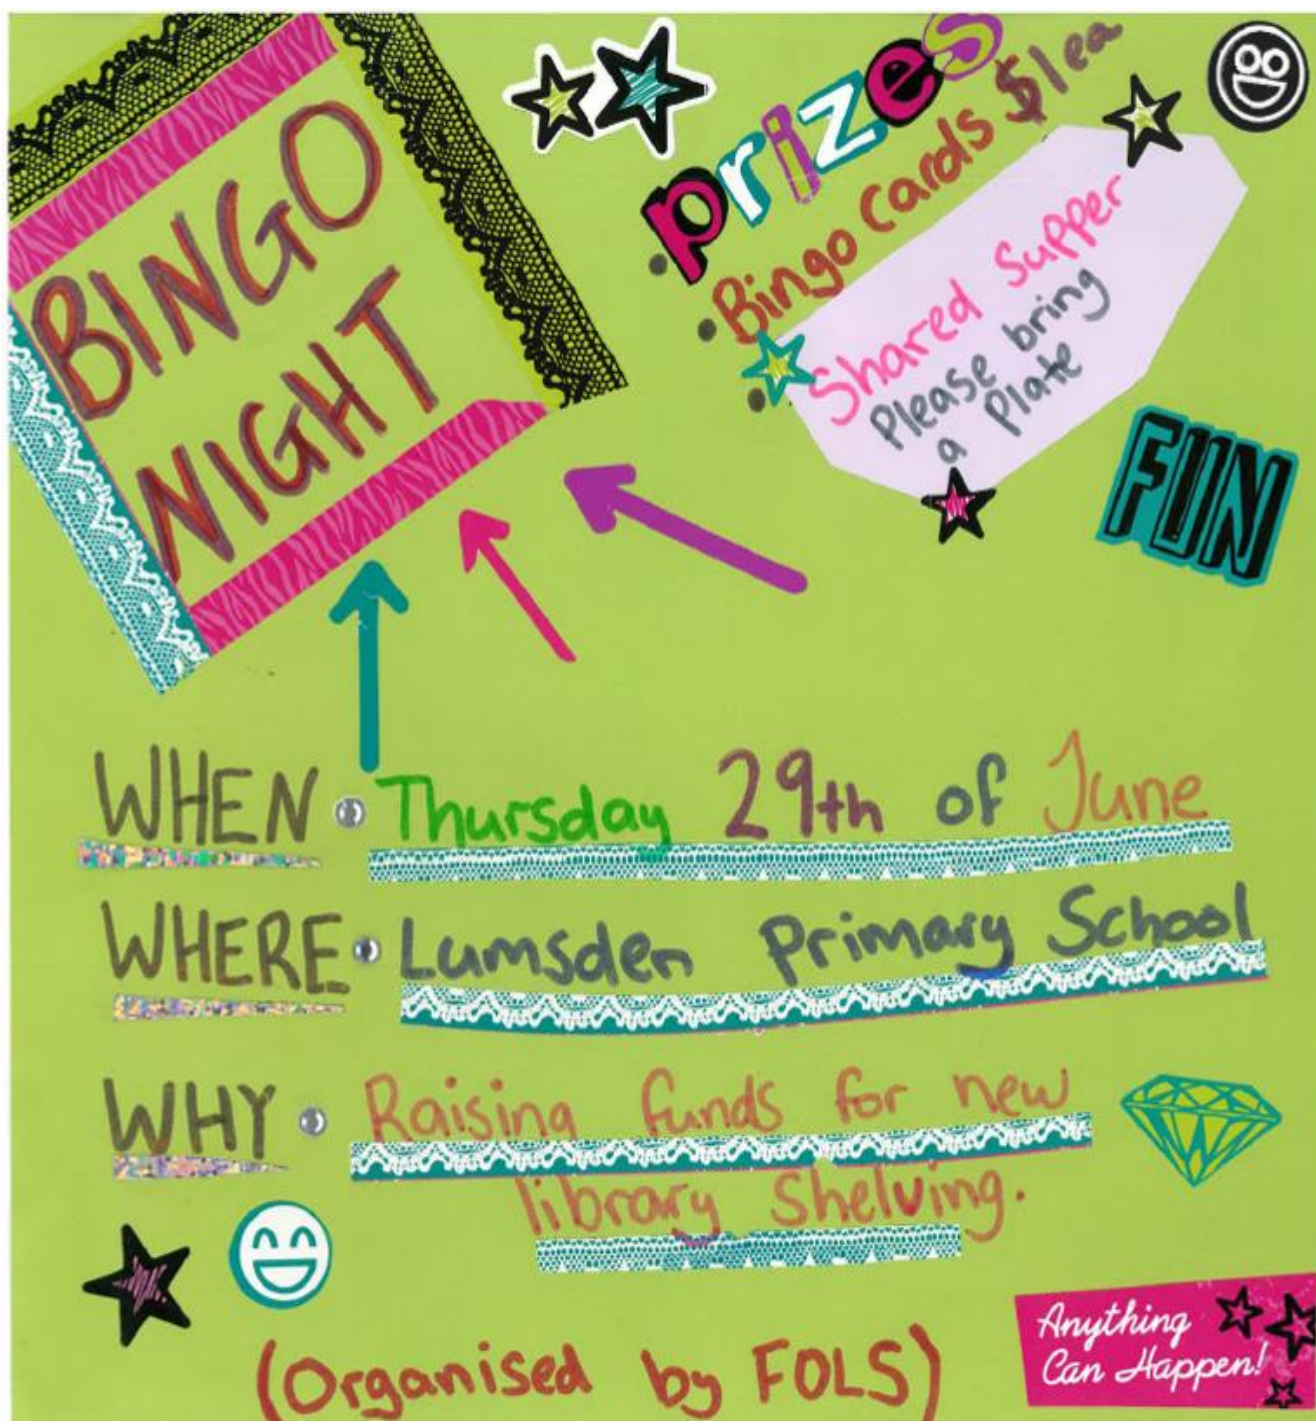 BINGO
NIGHT
prizes
Bingo Cards $1ea
Shared Supper
Please bring
a Plate
FUN
WHEN Thursday 29th of June
WHERE Lumsden Primary School
WHY Raising funds for new
library shelving.
(Organised by FOLS)
Anything
Can Happen!